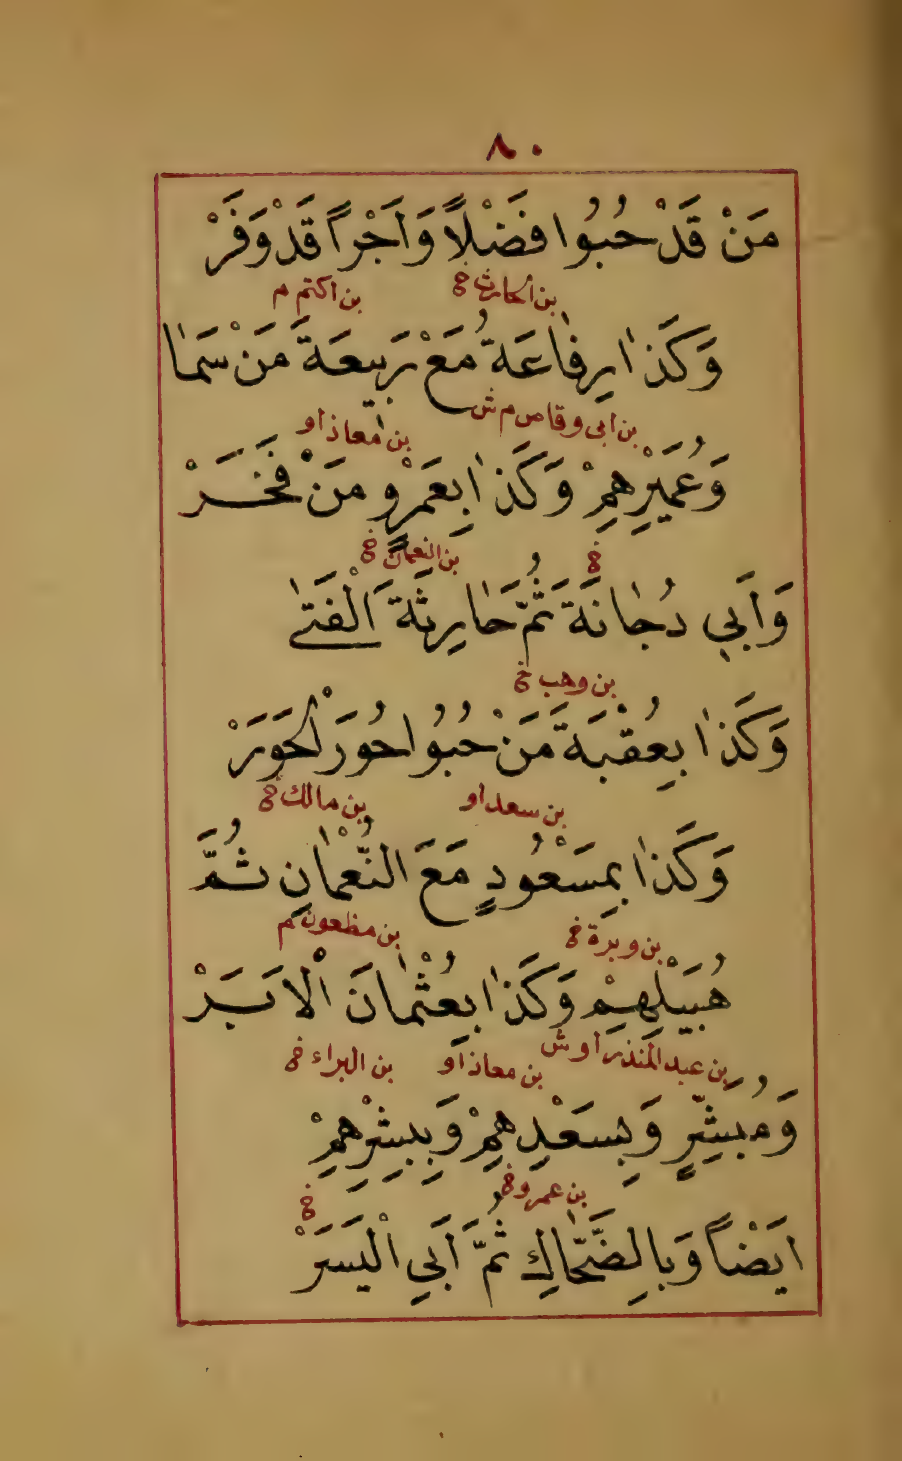 ٨٠
مَنْ قَدْ حُبُوا فَضْلاً وَاَجْراً قَدْ وَفَرْ
بن الحارث خ بن اكتم م
وَكَذٰا رِفٰاعَةُ مَعْ رَبيعَةَ مَنْ سَمٰا
بن ابى وقاص م ش بن معاذ او
وَعُمَيْرِهِمْ وَكَذٰا بِعَمْرٍو مَنْ فَخَرْ
خ بن النعمان خ
وَاَبي دُجٰانَةَ ثُمَّ حٰارِثَةَ الْفَتىٰ
بن وهب خ
وَكَذٰا بِعُقْبَةَ مَنْ حُبُوا حُورَ الْحَوَرْ
بن سعد او بن مالك خ
وَكَذٰا بِمَسْعُودٍ مَعَ النُّعْمٰانِ ثُمَّ
بن وبرة خ بن مظعون م
هُبَيْلِهِمْ وَكَذٰا بِعُثْمٰانَ الْاَبَرْ
بن عبد المنذر او ش بن معاذ او بن البراء خ
وَمُبَشِّرٍ وَبِسَعْدِهِمْ وَبِبِشْرِهِمْ
بن عمرو خ خ
اَيْضاً وَبِالضَّحّٰاكِ ثُمَّ اَبِي الْيَسَرْ